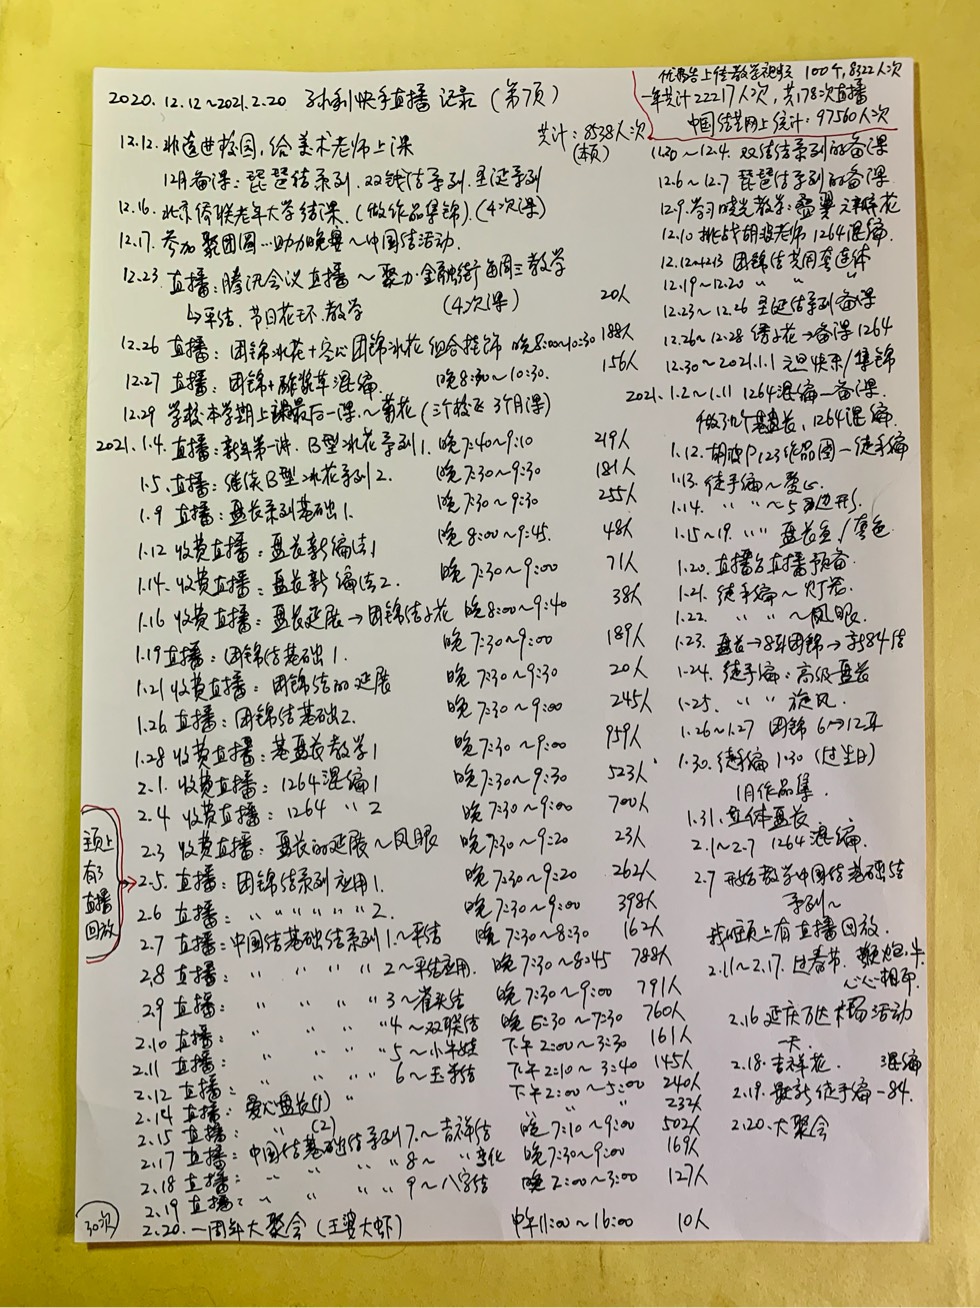 2020.12.12～2021.2.20 孙利快手直播 记录（第7页）
共计：8538人次
(本页)
优秀者上传教学视频 100个，8322人次
一年共计22217人次，共178次直播
中国结艺网上统计：97560人次
12.12. 非遗进校园，给美术老师上课
12月备课：琵琶结系列．双钱结系列．圣诞系列
12.16. 北京侨联老年大学结课．（做作品集锦）．(4次课)
12.17. 参加聚团圆…助力晚宴～中国结活动．
12.23 直播：腾讯会议直播～聚力·金融街每周三教学
↳平结．节日花环．教学 (4次课) 20人
12.26 直播：团锦冰花+空心团锦冰花 组合挂饰 晚8:00～10:30 188人
12.27 直播：团锦+酢浆草混编． 晚8:30～10:30. 156人
12.29 学校本学期上课最后一课．～菊花（三个校区 3个月课）
2021.1.4. 直播：新年第一讲．B型冰花系列1. 晚7:40～9:10 219人
1.5. 直播：继续B型冰花系列2. 晚7:30～9:30 181人
1.9 直播：盘长系列基础1. 晚7:30～9:30 255人
1.12 收费直播：盘长新编法1 晚8:00～9:45. 48人
1.14. 收费直播：盘长新编法2. 晚7:30～9:00 71人
1.16 收费直播：盘长延展→团锦结子花 晚8:00～9:40 38人
1.19 直播：团锦结基础1. 晚7:30～9:00 189人
1.21 收费直播：团锦结的延展 晚7:30～9:30 20人
1.26 直播：团锦结基础2. 晚7:30～9:00 245人
1.28 收费直播：基盘长教学1 晚7:30～9:00 959人
2.1. 收费直播：1264混编1 晚7:30～9:30 523人
2.4 收费直播：1264 〃 2 晚7:30～9:00 700人
2.3 收费直播：盘长的延展～凤眼 晚7:30～9:20 23人
2.5. 直播：团锦结系列应用1. 晚7:30～9:20 262人
2.6 直播：〃 〃 〃 〃 〃 〃 2. 晚7:30～9:00 398人
2.7 直播：中国结基础结系列1.～平结 晚7:30～8:30 162人
2.8 直播：〃 〃 〃 〃 2～平结应用. 晚7:30～8:45 788人
2.9 直播：〃 〃 〃 〃 3～雀头结 晚7:30～9:00 791人
2.10 直播：〃 〃 〃 〃 4～双联结 晚6:30～7:30 760人
2.11 直播：〃 〃 〃 〃 5～小牛娃 下午2:00～3:30 161人
2.12 直播：〃 〃 〃 6～玉米结 下午2:10～3:40 145人
2.14 直播：爱心盘长(1) 〃 下午2:00～5:00 240人
2.15 直播：〃 (2) 〃 〃 232人
2.17 直播：中国结基础结系列7.～吉祥结 晚7:10～9:00 502人
2.18 直播：〃 〃 〃 〃 8～〃变化 晚7:30～9:00 169人
2.19 直播：〃 〃 〃 〃 9～八字结 晚2:00～3:00 127人
2.20. 一周年大聚会（王婆大虾） 中午11:00～16:00 10人
30次
主页上
有了
直播
回放
11.30～12.4. 双钱结系列的备课
12.6～12.7 琵琶结系列的备课
12.9. 学习晓光教学：六瓣花
12.10 挑战胡波老师1264混编．
12.12～12.13 团锦结共用套连体
12.19～12.20 〃 〃 〃
12.23～12.26 圣诞结系列备课
12.26～12.28 绣子花→备课1264
12.30～2021.1.1 元旦快乐/集锦
2021. 1.2～1.11 1264混编—备课．
做几个基盘长，1264混编
1.12. 胡波P123作品图—徒手编
1.13. 徒手编～爱心．
1.14. 〃 〃 ～5边形．
1.15～19. 〃 〃 盘长鱼/
1.20. 直播与直播预备．
1.21. 徒手编～灯笼
1.22. 〃 〃 ～凤眼．
1.23. 盘长→8耳团锦→新84结
1.24. 徒手编：高级盘长
1.25. 〃 〃 旋风．
1.26～1.27 团锦 6→12耳
1.30. 徒手编 1.30（过生日）
1月作品集．
1.31. 立体盘长
2.1～2.7 1264混编．
2.7 开始教学中国结基础结
系列～
我主页上有直播回放．
2.11～2.17. 过春节．鞭炮．牛
心心相印．
2.16 延庆万达广场活动
一天．
2.18. 吉祥花． 混编
2.19. 最新徒手编—84.
2.20. 大聚会